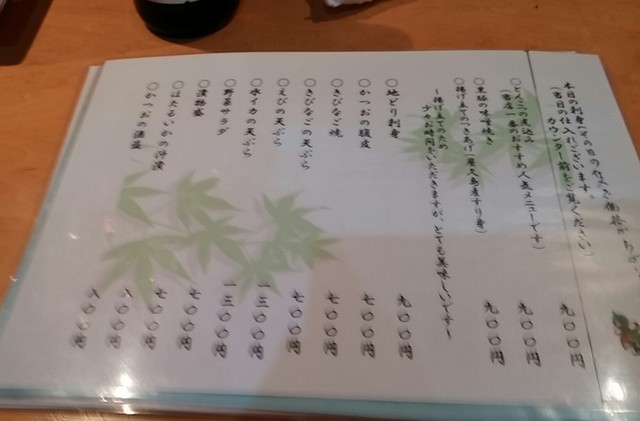 本日の刺身(その日の仕入で価格がちが
(毎日の仕入れございます。
カウンター前をご覧ください)
〇とんこつの煮込み 九〇〇円
(当店一番のおすすめ人気メニューです)
〇黒豚の味噌焼き 九〇〇円
〇揚げ立てのつきあげ(屋久島産すり身) 九〇〇円
~揚げ立てのため
少々お時間をいただきますが、とても美味しいです!~
〇地どり刺身 九〇〇円
〇かつおの腹皮 七〇〇円
〇きびなご焼 七〇〇円
〇きびなごの天ぷら 七〇〇円
〇えびの天ぷら 一三〇〇円
〇水イカの天ぷら 一三〇〇円
〇野菜サラダ 七〇〇円
〇漬物盛 七〇〇円
〇ほたるいかの沖漬 八〇〇円
〇かつおの酒盗 八〇〇円